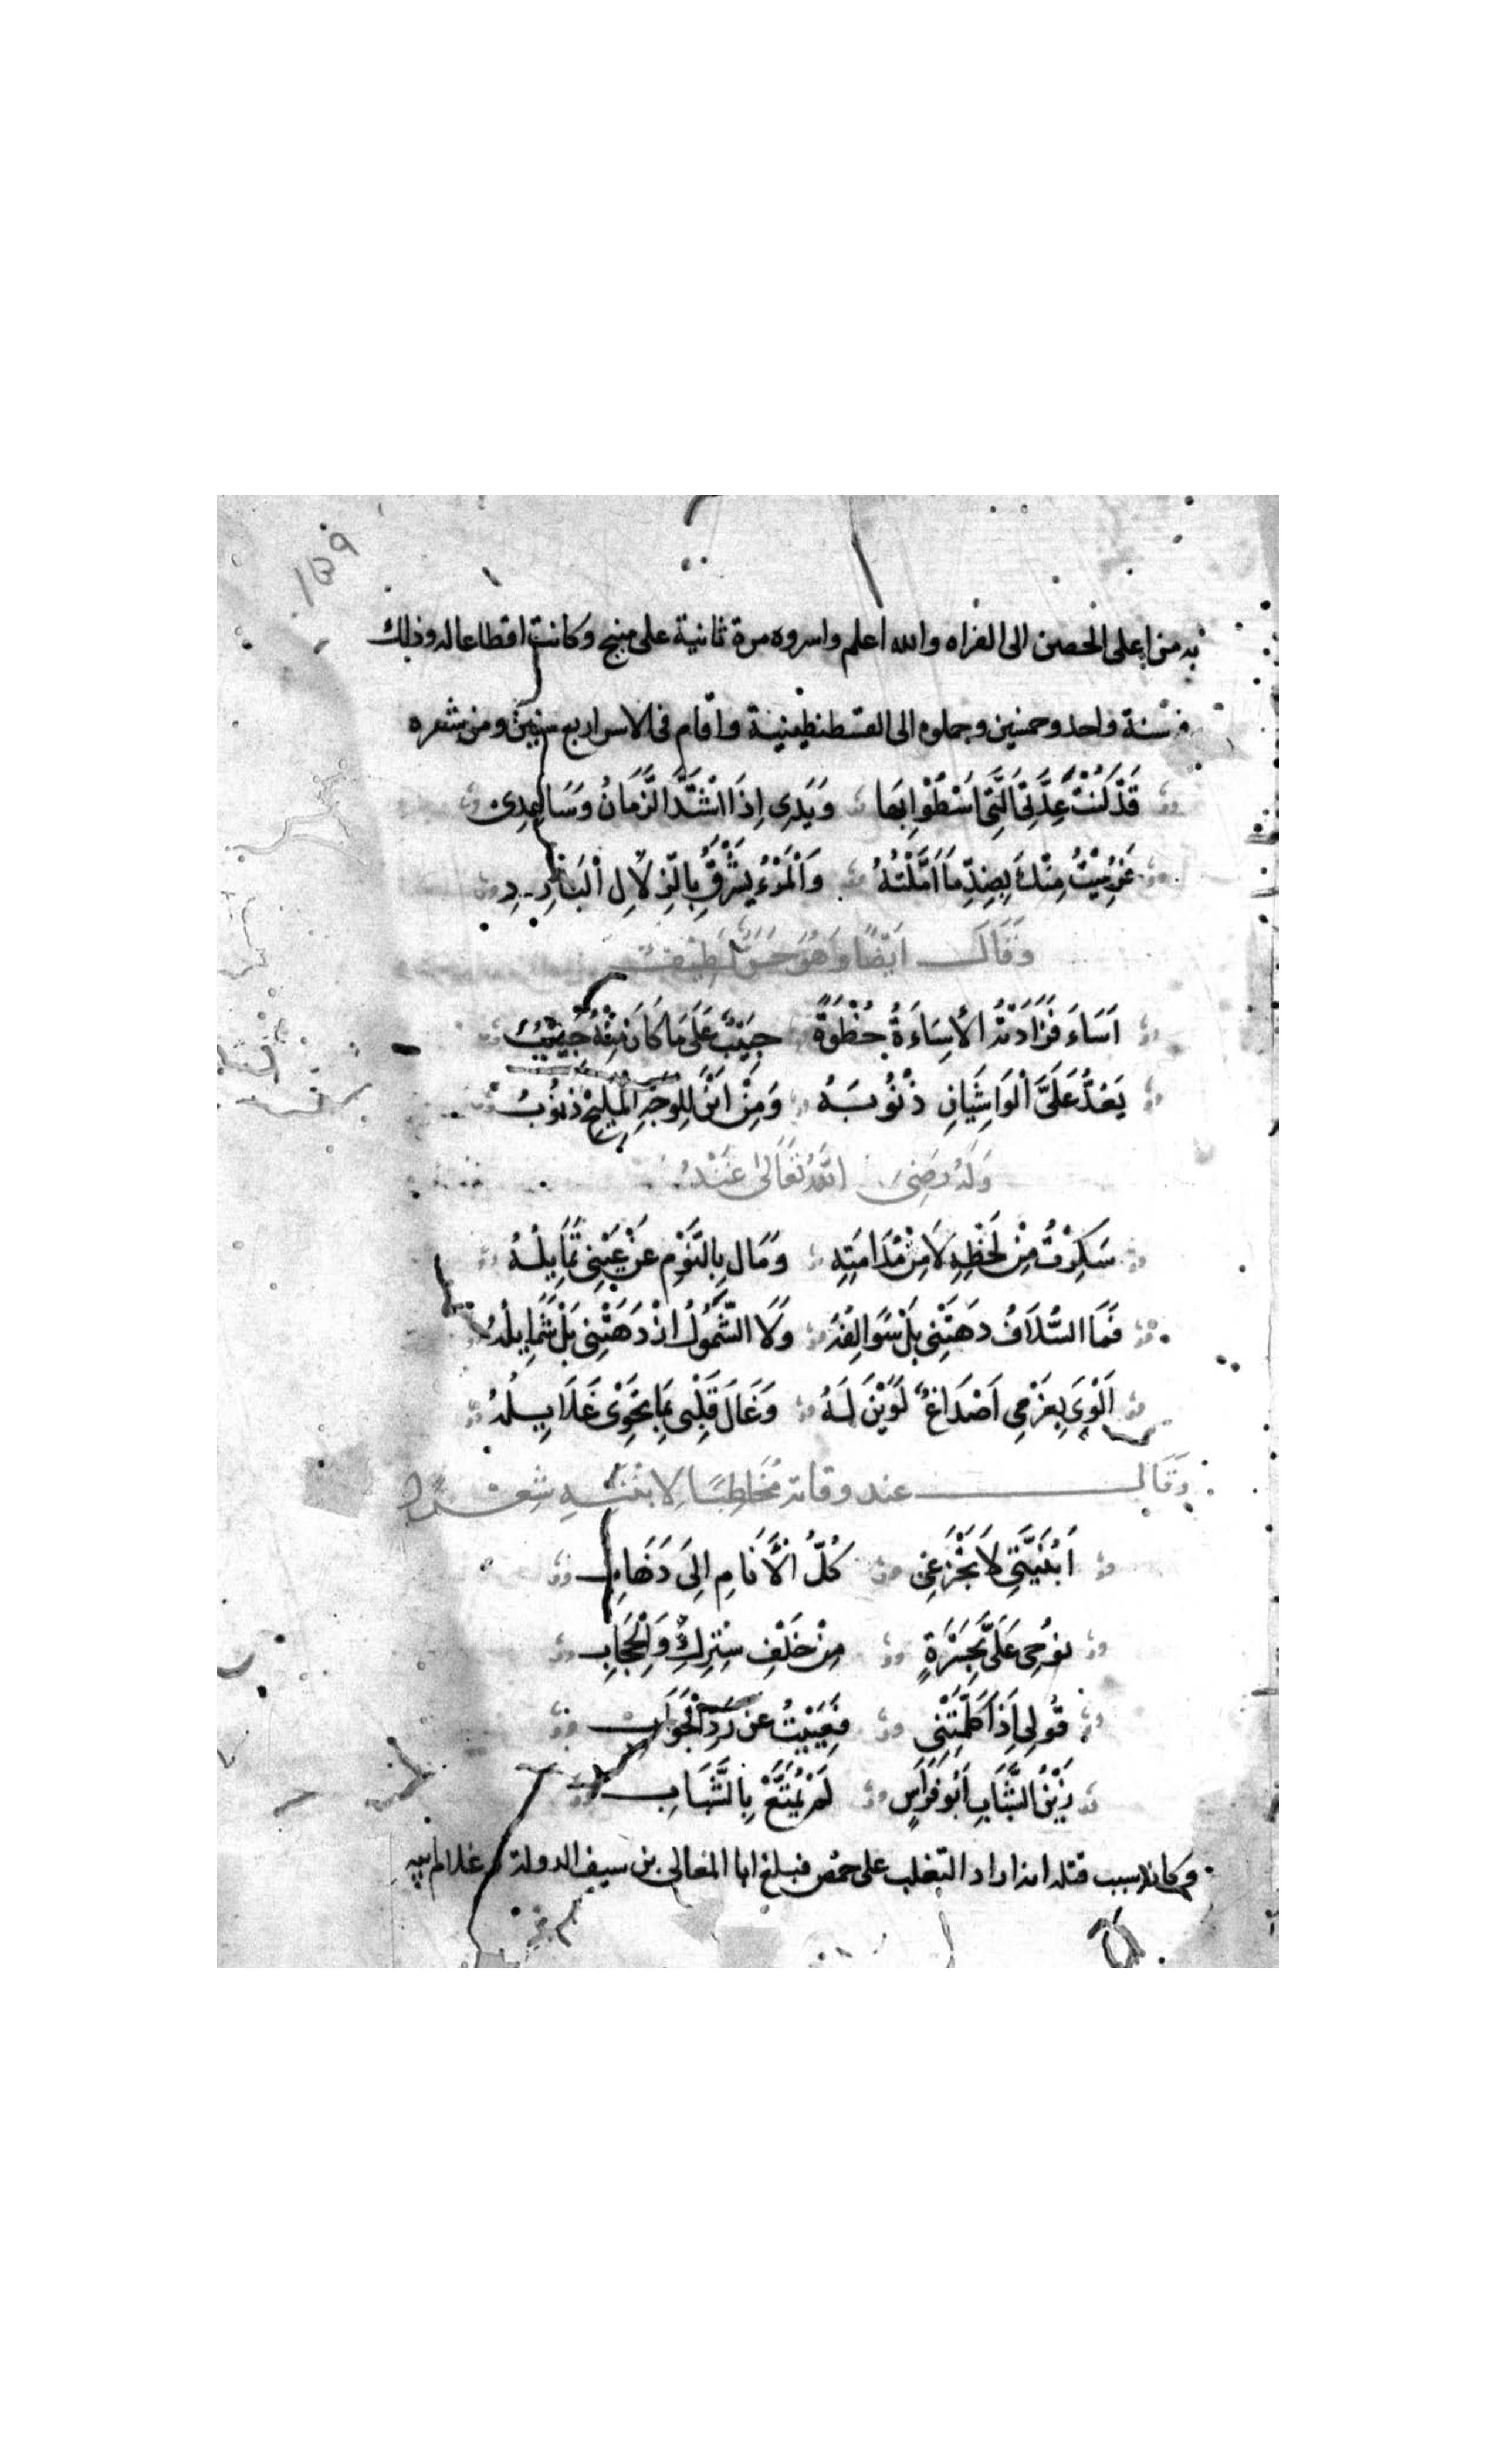 ١٣٩
به من اعلى الحصن الى الفراه والله اعلم واسروه مرة ثانية على منبج وكانت اقطاعا له وذلك
فى سنة واحد وخمسين وحملوه الى القسطنطينية واقام فى الاسر اربع سنين ومن شعره
قَدْ كُنْتَ عِدَّتِىَ الَّتِى اَسْطُوْا بِهَا وَيَدِى اِذَا اشْتَدَّ الزَّمَانُ وَسَاعِدِى
فَرُمِيْتُ مِنْكَ بِضِدِّ مَا اَمَّلْتُهُ وَالْمَرْءُ يَشْرَقُ بِالزِّلَالِ الْبَارِدِ
وَقَالَ اَيْضًا وَهُوَ لَطِيف
اَسَاءَ فَزَادَتْهُ الْاِسَاءَةُ حُظْوَةً حَبِيْبٌ عَلَى مَا كَانَ مِنْهُ حَبِيْبُ
يَعُدُّ عَلَىَّ الْوَاشِيَانِ ذُنُوْبَهُ وَمِنْ اَيْنَ لِلْوَجْهِ الْمَلِيْحِ ذُنُوْبُ
وَلَهُ رَضِىَ اللهُ تَعَالَى عَنْهُ
سَكِرْتُ مِنْ لَحْظِهِ لَا مِنْ مُدَامَتِهِ وَمَالَ بِالنَّوْمِ عَنْ عَيْنِى تَمَايُلُهُ
فَمَا السُّلَافُ دَهَتْنِى بَلْ سَوَالِفُهُ وَلَا الشَّمُوْلُ اِذْ دَهَتْنِى بَلْ شَمَايِلُهُ
اَلْوَى بِعَزْمِى اَصْدَاغٌ لَوَيْنَ لَهُ وَغَالَ قَلْبِى بِمَا تَحْوِى غَلَايِلُهُ
وَقَالَ عند وفاته مُخَاطِبًا لِابْنَتِهِ شِعْرًا
اَبُنَيَّتِى لَا تَجْزَعِى كُلُّ الْاَنَامِ اِلَى ذَهَابِ
نُوْحِى عَلَىَّ بِحَسْرَةٍ مِنْ خَلْفِ سِتْرِكِ وَالْحِجَابِ
قُولِى اِذَا كَلَّمْتِنِى فَعَيِيْتُ عَنْ رَدِّ الْجَوَابِ
زَيْنُ الشَّبَابِ اَبُو فِرَاسٍ لَمْ يُمَتَّعْ بِالشَّبَابِ
وكان سبب قتله انه اراد التغلب على حمص فبلغ ابا المعالى بن سيف الدولة وغلام ابيه